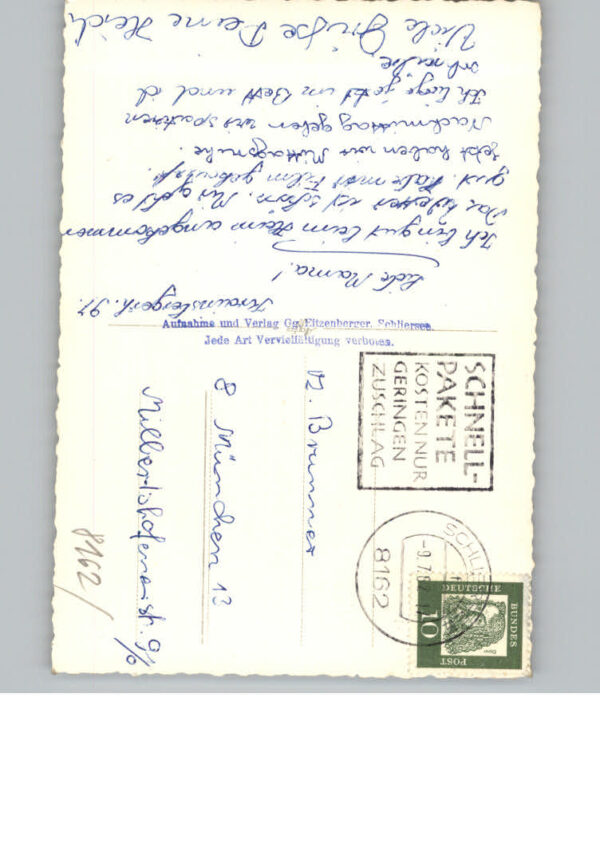 Liebe Mama!
Ich bin gut beim Heim angekommen
Das Wetter ist schön. Mir geht es
gut. Habe mal Film gebraucht.
Jetzt haben wir Mittagsruhe.
Nachmittag gehen wir spatzieren
Ich liege jetzt im Bett und
schreibe.
Viele Grüße Deine Heidi
Aufnahme und Verlag Gg. Eitzenberger, Schliersee.
Jede Art Vervielfältigung verboten.
SCHNELL-
PAKETE
KOSTEN NUR
GERINGEN
ZUSCHLAG
SCHLIE
-9.7.6
8162
DEUTSCHE
BUNDES
POST
10
Dürer
M. Brunner
8 München 13
Milbertshofenerstr. 91/0
8162/